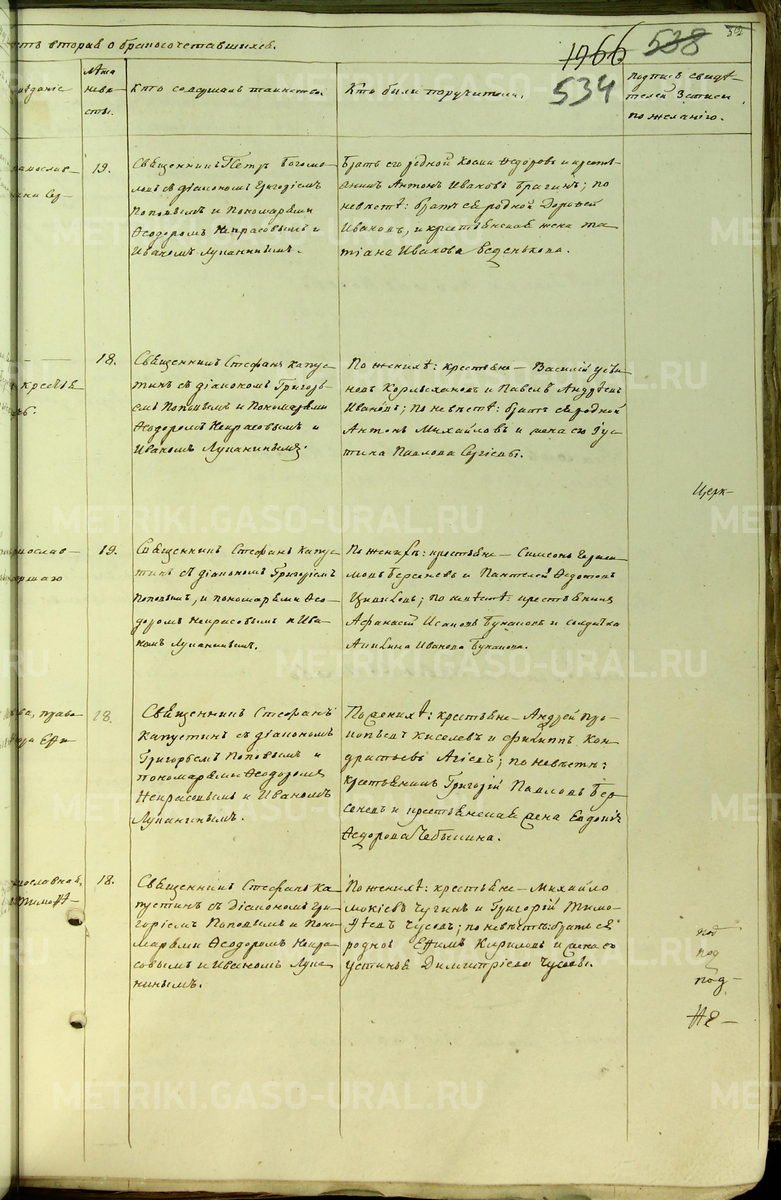 сть вторая о бракосочетавшихся.
1066 538
534
Лѣта невѣ-
сты.
Кто совершалъ таинство.
Кто были поручители.
подпись свидѣ-
телей записи
по желанію.
19.
Священникъ Петръ Богомо-
ловъ съ діакономъ Григоріемъ
Поповымъ и Пономарями
Ѳеодоромъ Некрасовымъ и
Иваномъ Лупанинымъ.
Братъ его родной Косьма Ѳедоровъ и кресть-
янинъ Антонъ Ивановъ Брагинъ; по
невѣстѣ: братъ ея родной Дороѳей
Ивановъ, и крестьянская жена Та-
тіана Иванова Веденькова.
18.
Священникъ Стефанъ Капус-
тинъ съ діакономъ Григорь-
емъ Поповымъ и Пономарями
Ѳеодоромъ Некрасовымъ и
Иваномъ Лупанинымъ.
По женихѣ: крестьяне — Василій Усти-
новъ и Павелъ Андреевъ
Ивановъ; По невѣстѣ: братъ ея родной
Антонъ Михайловъ и жена его Іус-
тина Павлова Сергіевы.
Церк-
19.
Священникъ Стефанъ Капус-
тинъ съ діакономъ Григоріемъ
Поповымъ, и пономарями Ѳео-
доромъ Некрасовымъ и Ива-
номъ Лупанинымъ.
По женихѣ: крестьяне — Симеонъ
Берсеневъ и Пантелей Ѳедотовъ
По невѣстѣ: крестьянинъ
Афанасій Исаковъ Букановъ и солдатка
Акилина Иванова Буканова.
18.
Священникъ Стефанъ
Капустинъ съ діакономъ
Григорьемъ Поповымъ и
пономарями Ѳеодоромъ
Некрасовымъ и Иваномъ
Лупанинымъ.
По женихѣ: крестьяне — Андрей Про-
копьевъ Киселевъ и Филиппъ Кон-
дратьевъ Агіевъ; по невѣстѣ:
крестьянинъ Григорій Павловъ Бер-
сеневъ и крестьянская жена Евдокія
Ѳедорова Чебыкина.
18.
Священникъ Стефанъ Ка-
пустинъ съ Діакономъ Гри-
горіемъ Поповымъ и Поно-
марями Ѳеодоромъ Некра-
совымъ и Иваномъ Лупа-
нинымъ.
По женихѣ: крестьяне — Михайло
Мокіевъ Чугинъ и Григорій Тимо-
ѳеевъ Чусовъ; по невѣстѣ: братъ ея
родной Ефимъ Кириловъ и жена его
Устинья Димитріева Чусовы.
под-
METRIKI.GASO-URAL.RU